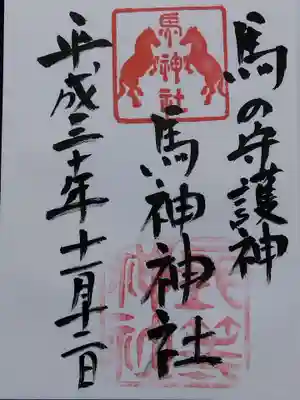 馬の守護神
馬神社
馬神神社
平成三十年十一月十二日